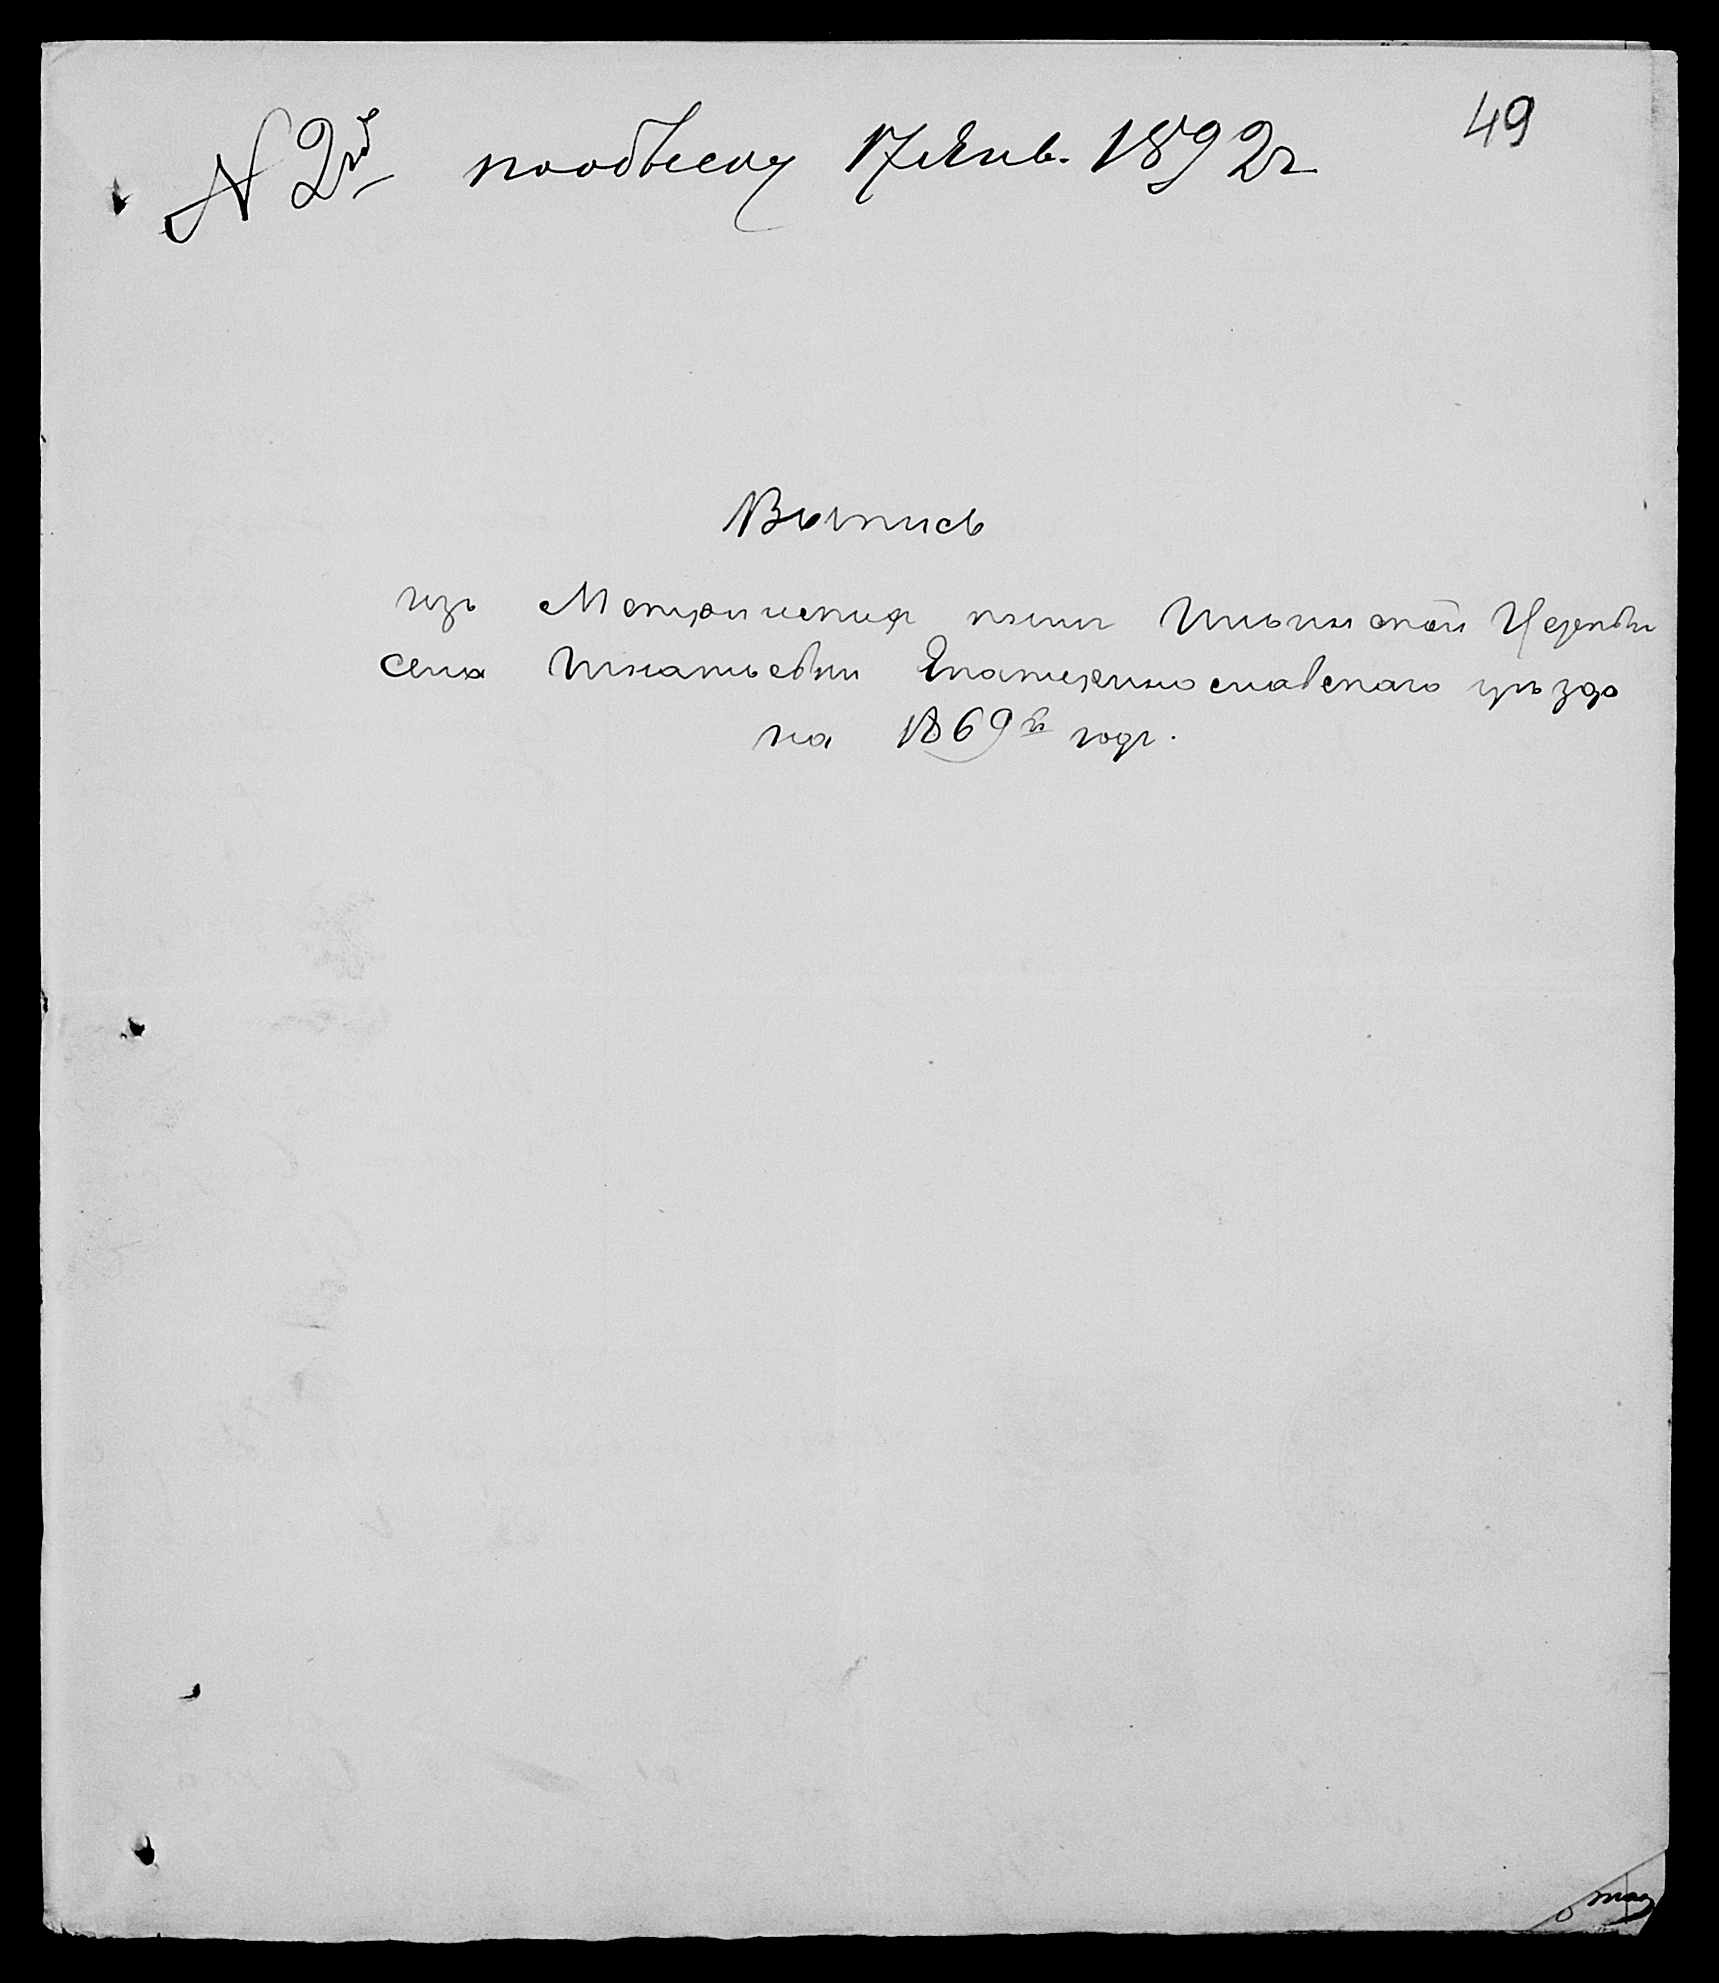 49
N 2й по объему 17 Янв. 1892 г
Выпись
изъ Метрической книги Ильинской Церкви
села Игнатьевки Екатеринославскаго уѣзда
на 1869й годъ.